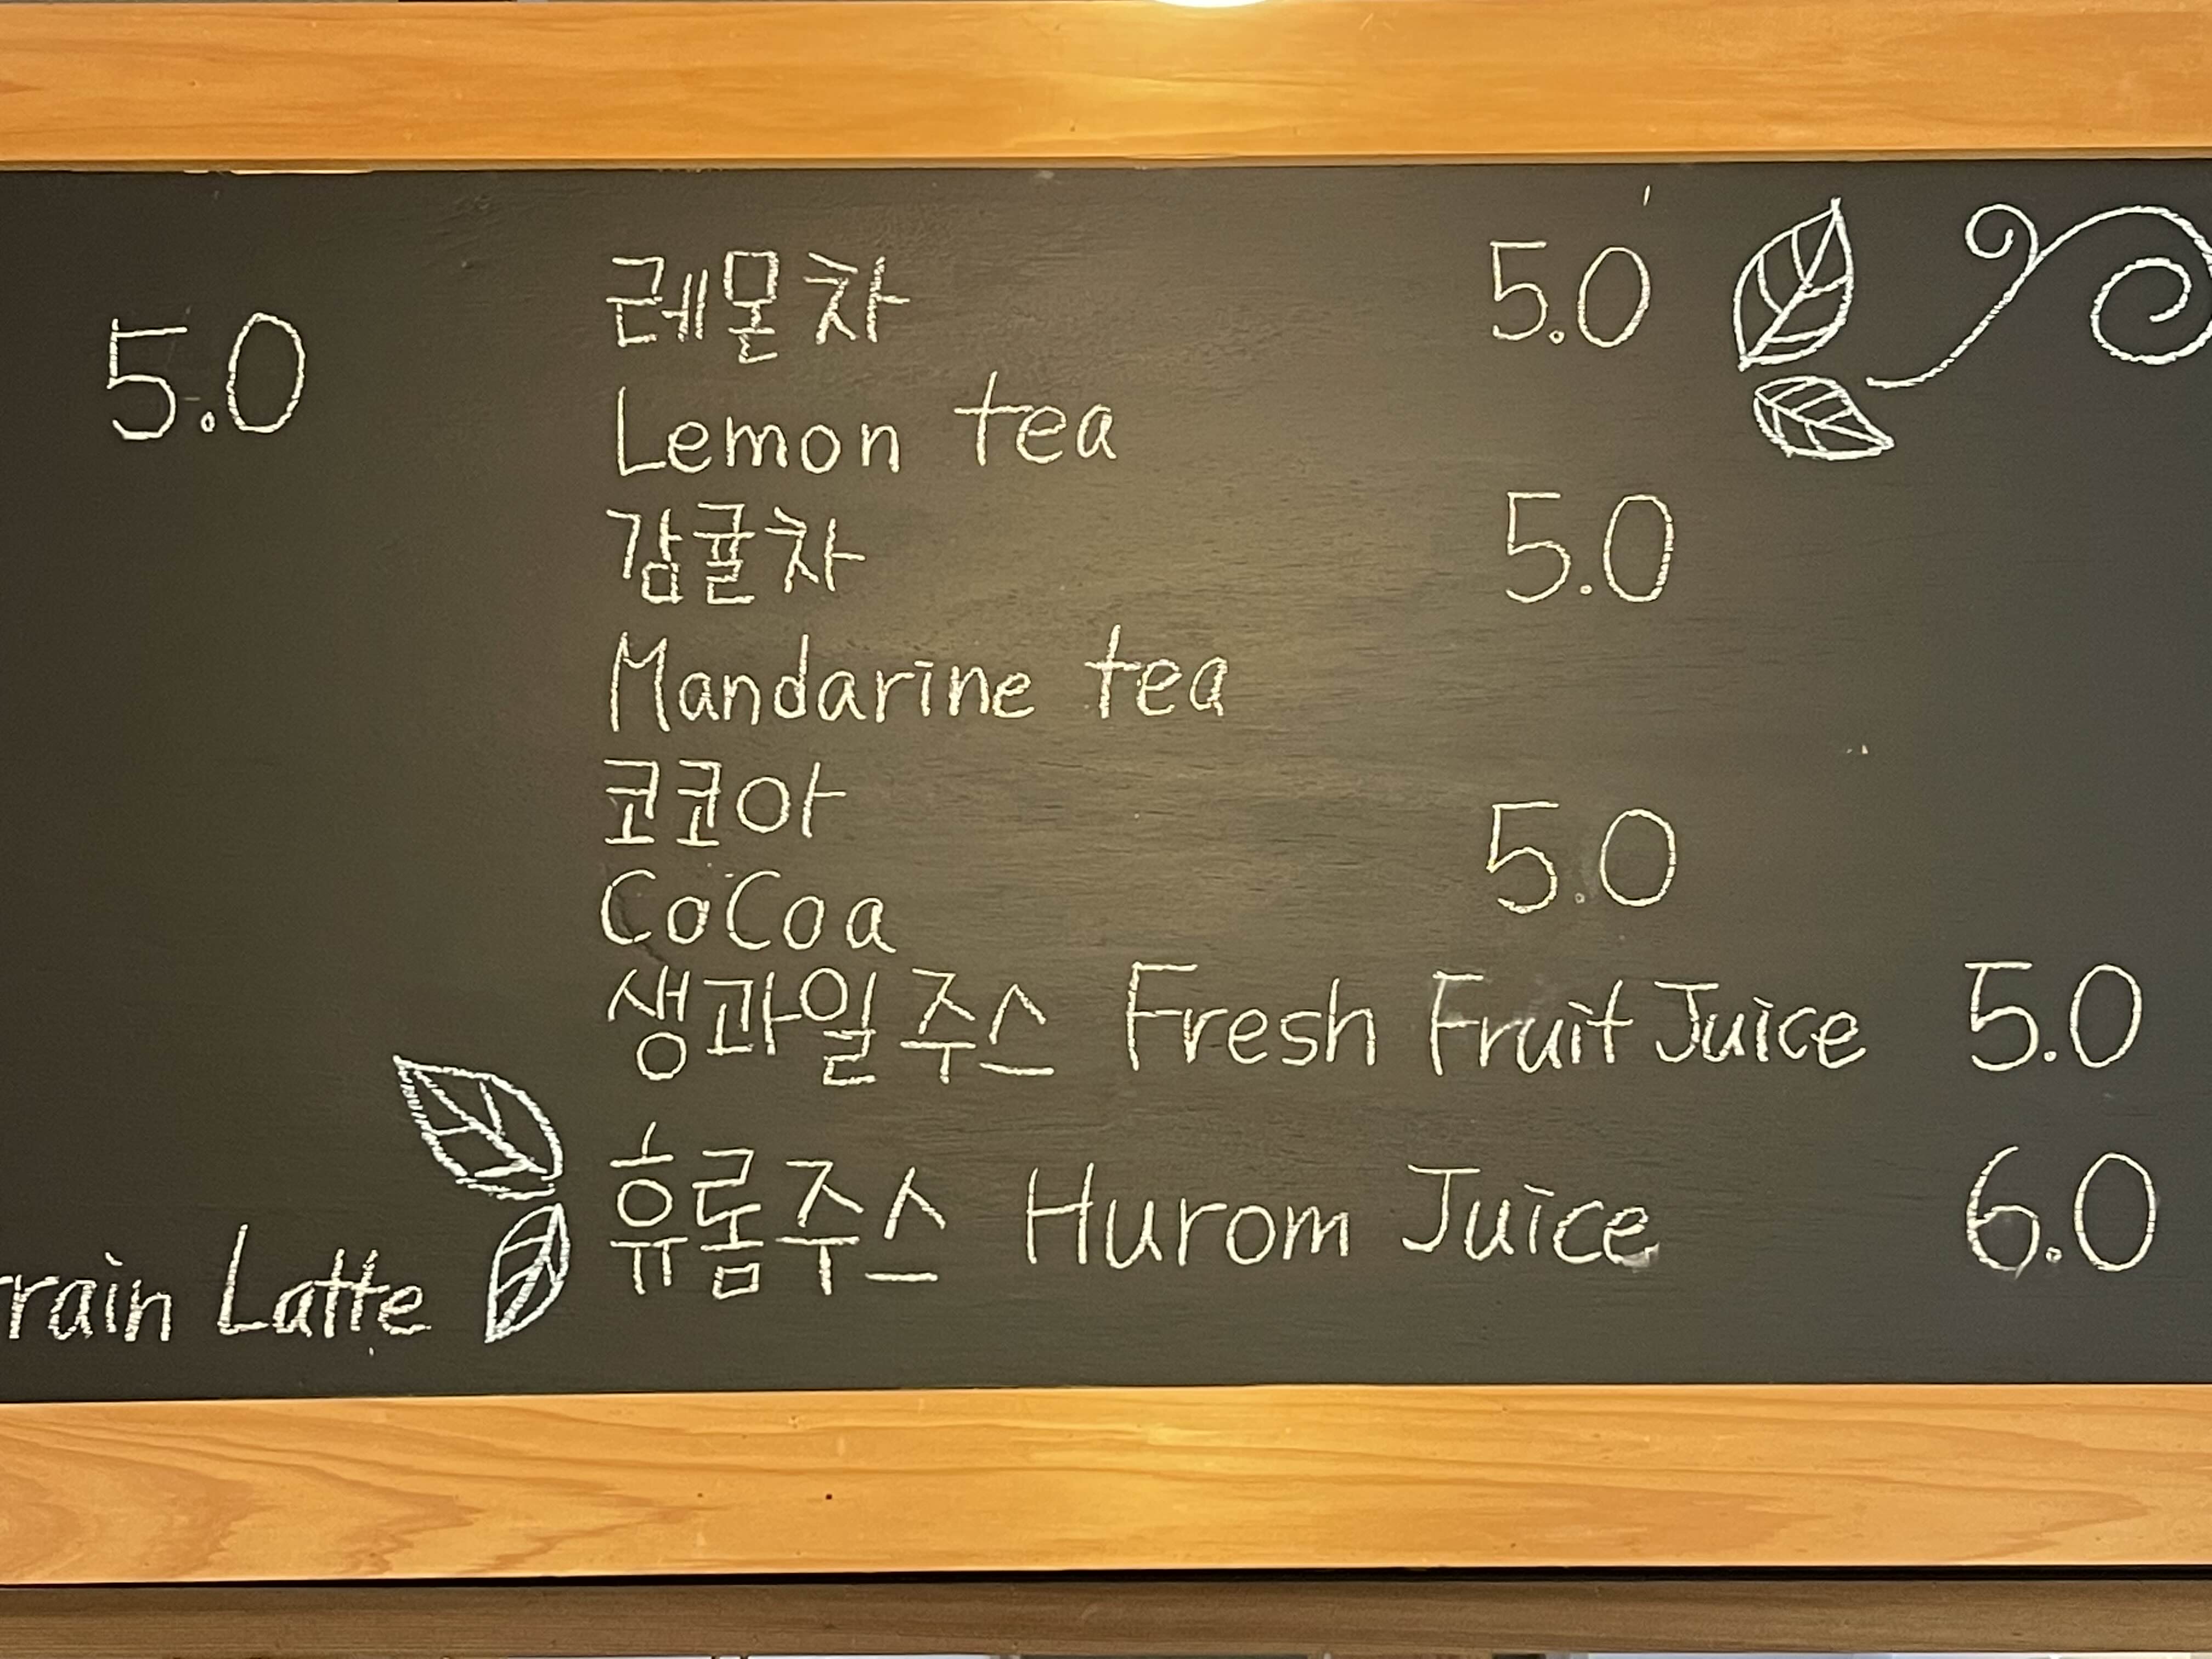 5.0
레몰차 5.0
Lemon tea
감귤차 5.0
Mandarine tea
코코아 5.0
CoCoa
생과일주스 Fresh Fruit Juice 5.0
휴롬주스 Hurom Juice 6.0
rain Latte